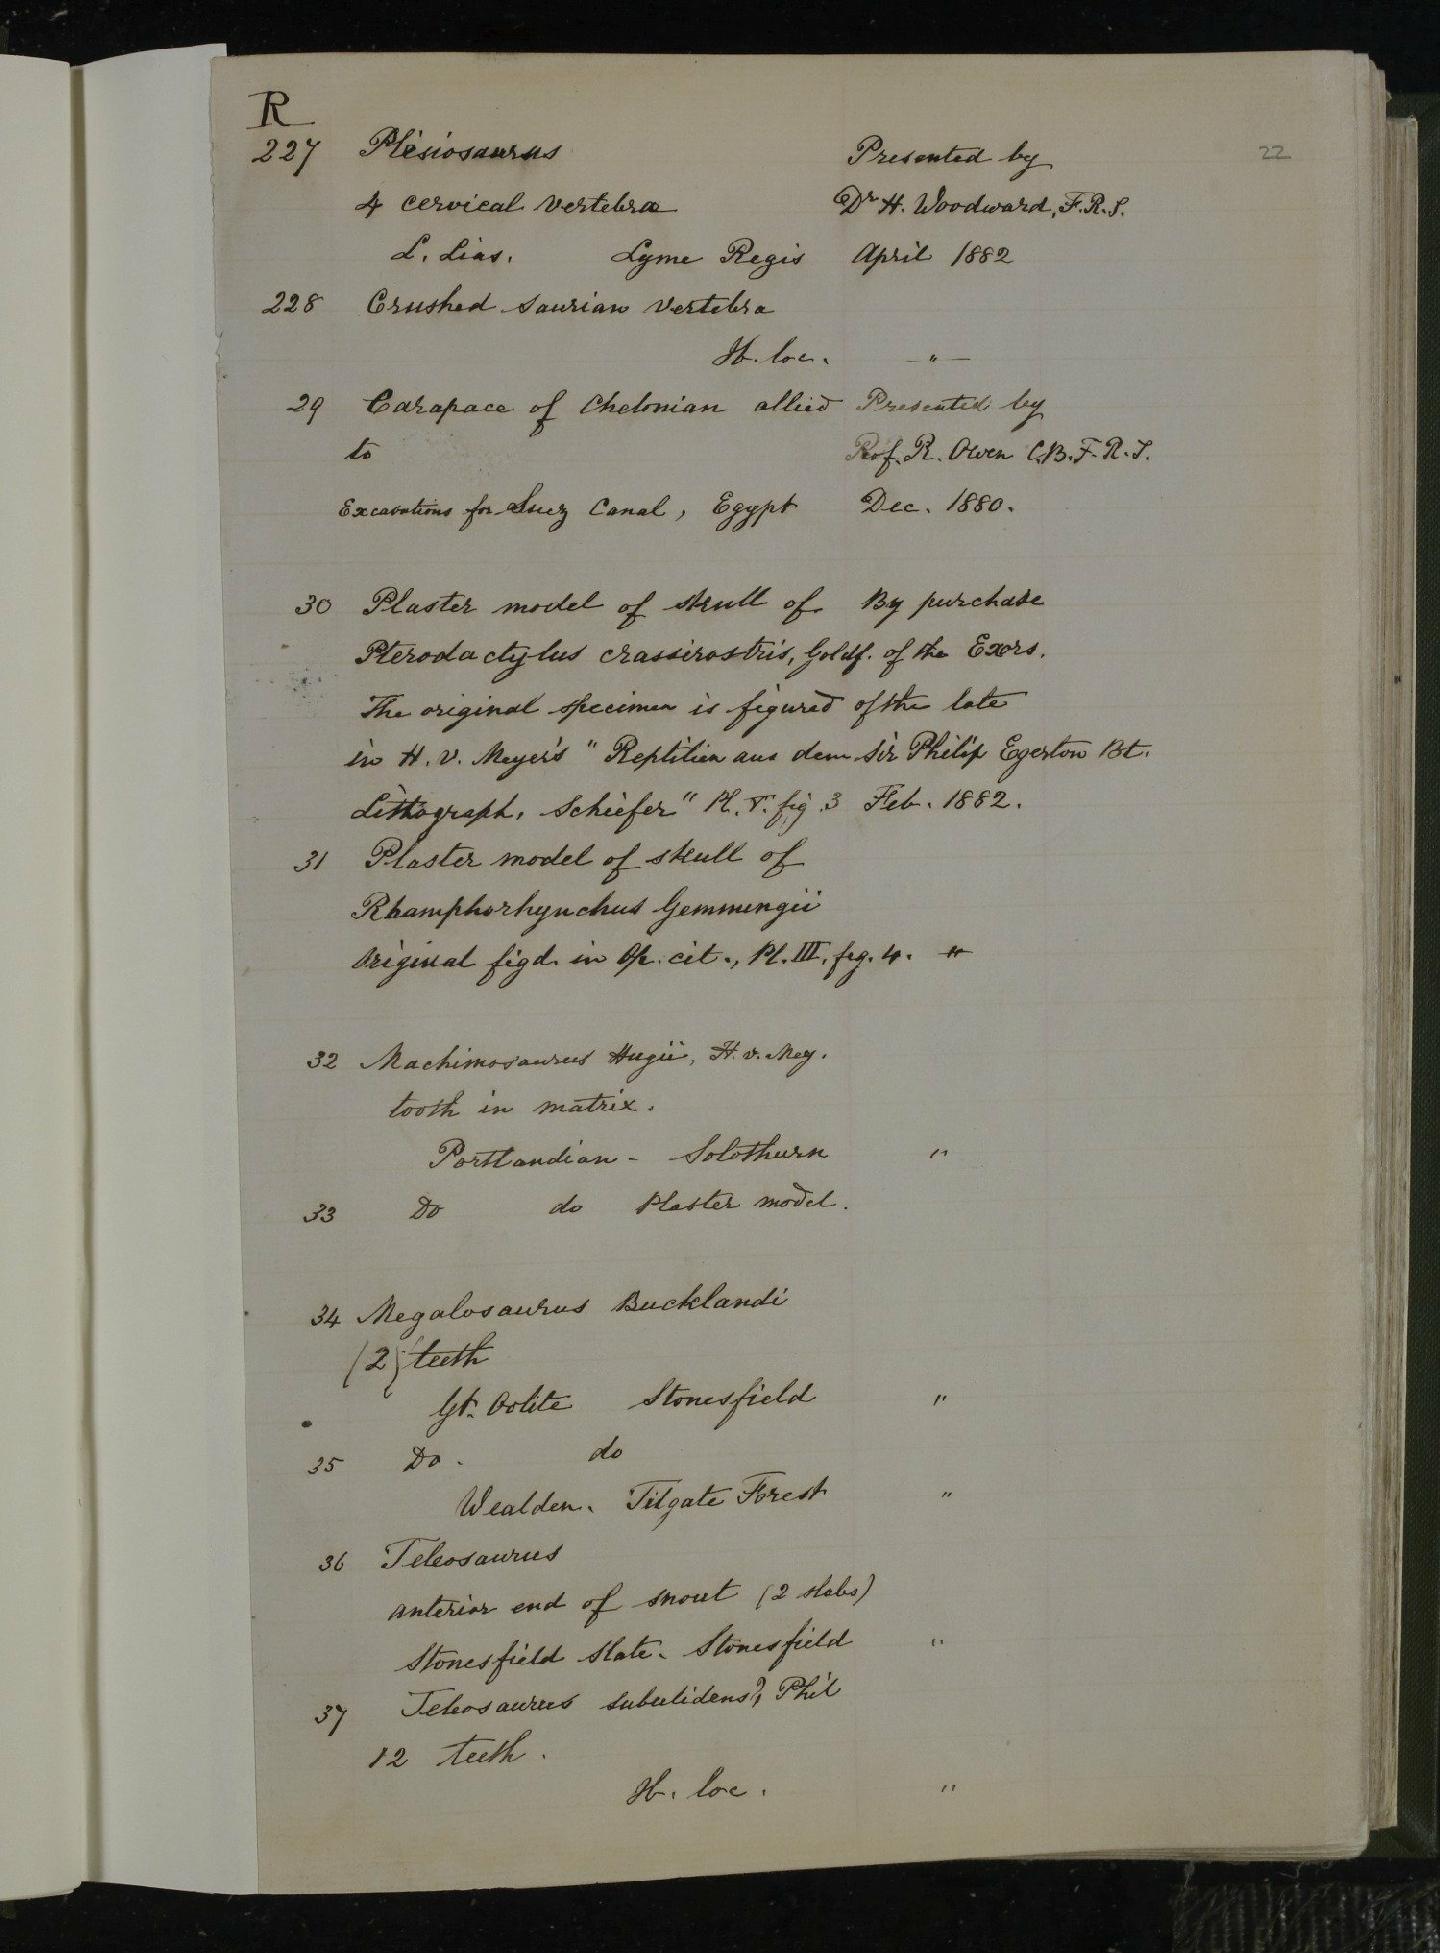 R
22
227 Plesiosaurus Presented by
4 cervical vertebræ Dr H. Woodward, F.R.S.
L. Lias. Lyme Regis April 1882
228 Crushed saurian vertebra
Hb. loc. — " —
29 Carapace of Chelonian allied Presented by
to Prof. R. Owen C.B. F.R.S.
Excavations for Suez Canal, Egypt Dec. 1880.
30 Plaster model of skull of By purchase
Pterodactylus crassirostris, Goldf. of the Exors.
The original specimen is figured of the late
in H. v. Meyer's "Reptilien aus dem Sir Philip Egerton Bt.
Lithograph. Schiefer" Pl. V. fig 3 Feb. 1882.
31 Plaster model of skull of
Rhamphorhynchus Gemmingii
Original figd. in Op. cit., Pl. III, fig. 4. "
32 Machimosaurus Hugii, H. v. Mey.
tooth in matrix.
Portlandian - Solothurn "
33 Do do Plaster model.
34 Megalosaurus Bucklandi
(2) teeth
Gt. Oolite Stonesfield "
35 Do. do
Wealden. Tilgate Forest "
36 Teleosaurus
anterior end of snout (2 slabs)
Stonesfield Slate. Stonesfield "
37 Teleosaurus subulidens?, Phil
12 teeth.
Hb. loc. "